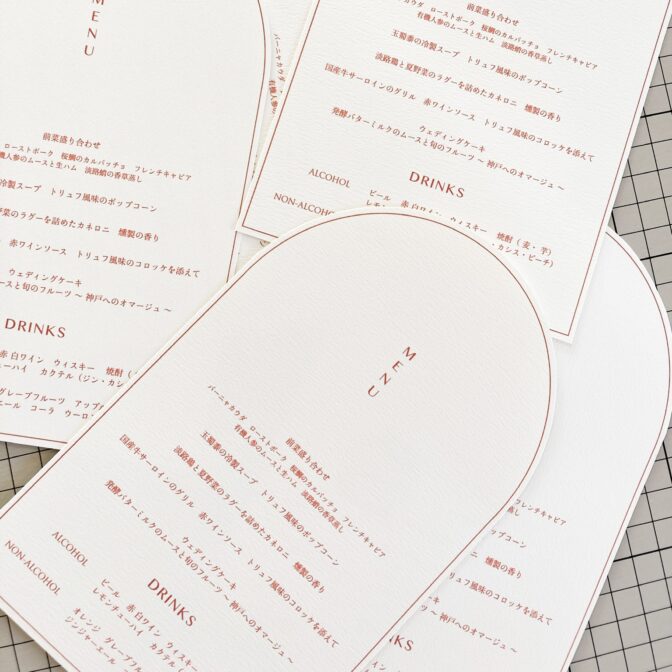 MENU
前菜盛り合わせ
ローストポーク 桜鯛のカルパッチョ フレンチキャビア
有機人参のムースと生ハム 淡路蛸の香草蒸し
冷製スープ トリュフ風味のポップコーン
野菜のラグーを詰めたカネロニ 燻製の香り
赤ワインソース トリュフ風味のコロッケを添えて
ウェディングケーキ
ムースと旬のフルーツ 〜 神戸へのオマージュ 〜
DRINKS
赤 白ワイン ウィスキー 焼酎（
ューハイ カクテル（ジン・カシ
グレープフルーツ アップ
エール コーラ ウーロ
バーニャカウダ
前菜盛り合わせ
ローストポーク 桜鯛のカルパッチョ フレンチキャビア
有機人参のムースと生ハム 淡路蛸の香草蒸し
玉蜀黍の冷製スープ トリュフ風味のポップコーン
淡路鶏と夏野菜のラグーを詰めたカネロニ 燻製の香り
国産牛サーロインのグリル 赤ワインソース トリュフ風味のコロッケを添えて
ウェディングケーキ
発酵バターミルクのムースと旬のフルーツ 〜 神戸へのオマージュ 〜
DRINKS
ALCOHOL
ビール 赤 白ワイン ウィスキー 焼酎（麦・芋）
レモン
・カシス・ピーチ）
NON-ALCOHOL
MENU
前菜盛り合わせ
バーニャカウダ ローストポーク 桜鯛のカルパッチョ フレンチキャビア
有機人参のムースと生ハム 淡路蛸の香草蒸し
玉蜀黍の冷製スープ トリュフ風味のポップコーン
淡路鶏と夏野菜のラグーを詰めたカネロニ 燻製の香り
国産牛サーロインのグリル 赤ワインソース トリュフ風味のコロッケを添えて
ウェディングケーキ
発酵バターミルクのムースと旬のフルーツ 〜 神戸へのオマージュ 〜
DRINKS
ALCOHOL
ビール 赤 白ワイン ウィスキー
レモンチューハイ カクテル（
NON-ALCOHOL
オレンジ グレープフルー
ジンジャーエール
フレンチキャビア
蒸し
プコーン
燻製の香り
風味のコロッケを添えて
ツ 〜 神戸へのオマージュ 〜
DRINKS